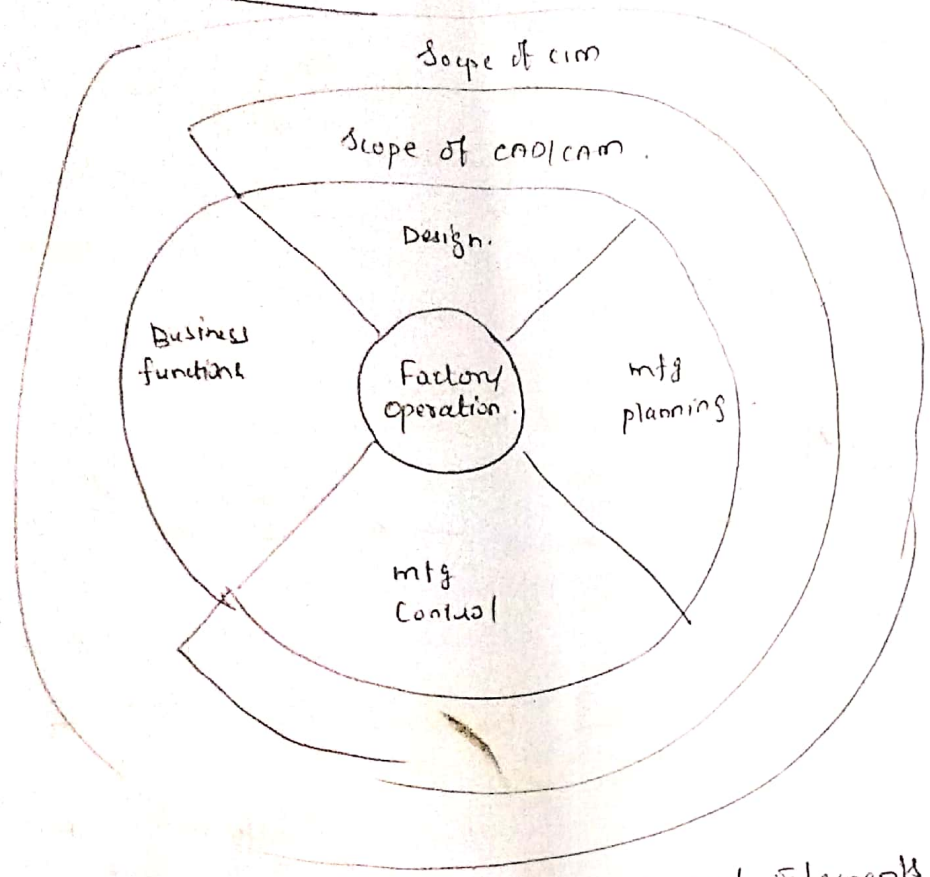 Scope of CIM
Scope of CAD/CAM.
Design.
Business
functions
Factory
operation.
mfg
planning
mfg
Control
Elements